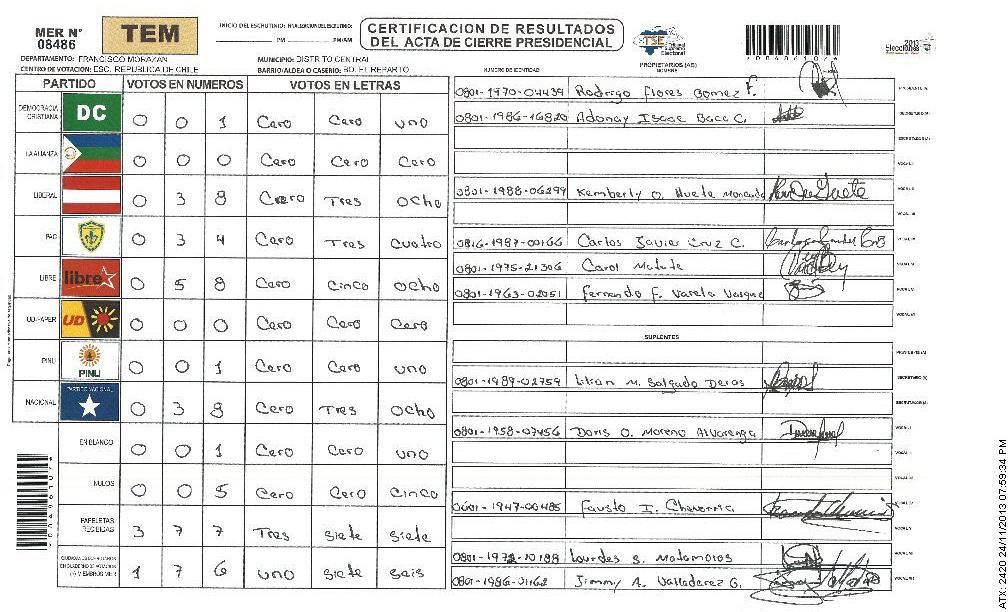 MER N° 08486
TEM
INICIO DEL ESCRUTINIO: FINALIZACION DEL ESCRUTINIO:
PM PM/AM
CERTIFICACION DE RESULTADOS
DEL ACTA DE CIERRE PRESIDENCIAL
TSE
2013
Elecciones
DEPARTAMENTO: FRANCISCO MORAZAN
MUNICIPIO: DISTRITO CENTRAL
CENTRO DE VOTACION: ESC. REPUBLICA DE CHILE
BARRIO/ALDEA O CASERIO: BO. EL REPARTO
NUMERO DE IDENTIDAD
PROPIETARIOS (AS)
NOMBRE
PARTIDO VOTOS EN NUMEROS VOTOS EN LETRAS
DEMOCRACIA CRISTIANA DC 0 0 1 Cero Cero uno
LA ALIANZA 0 0 0 Cero Cero Cero
LIBERAL 0 3 8 Cero Tres ocho
PAC 0 3 4 Cero Tres cuatro
LIBRE libre 0 5 8 Cero cinco ocho
UD-FAPER UD 0 0 0 Cero Cero Cero
PINU PINU 0 0 1 Cero Cero uno
NACIONAL PARTIDO NACIONAL 0 3 8 Cero Tres ocho
EN BLANCO 0 0 1 Cero Cero uno
NULOS 0 0 5 Cero Cero cinco
PAPELETAS RECIBIDAS 3 7 7 Tres siete siete
1 7 6 uno siete seis
0801-1970-04439 Rodrigo Flores Gomez F.
0801-1986-16820 Adonay Isaac Baca C.
0801-1988-06299 Kemberly O. Hueta Moncada
0816-1987-00166 Carlos Javier Cruz C.
0801-1975-21306 Carol Matute
0801-1963-02051 Fernando F. Varela Vasquez
SUPLENTES
0801-1989-02759 Lilian M. Salgado Deras
0801-1958-07456 Doris O. Moreno Alvarenga
0601-1947-00485 Fausto I. Cheverria
0801-1972-10188 Lourdes S. Matamoros
0801-1986-01162 Jimmy A. Valladerez G.
ATX: 2420 24/11/2013 07:59:34 PM